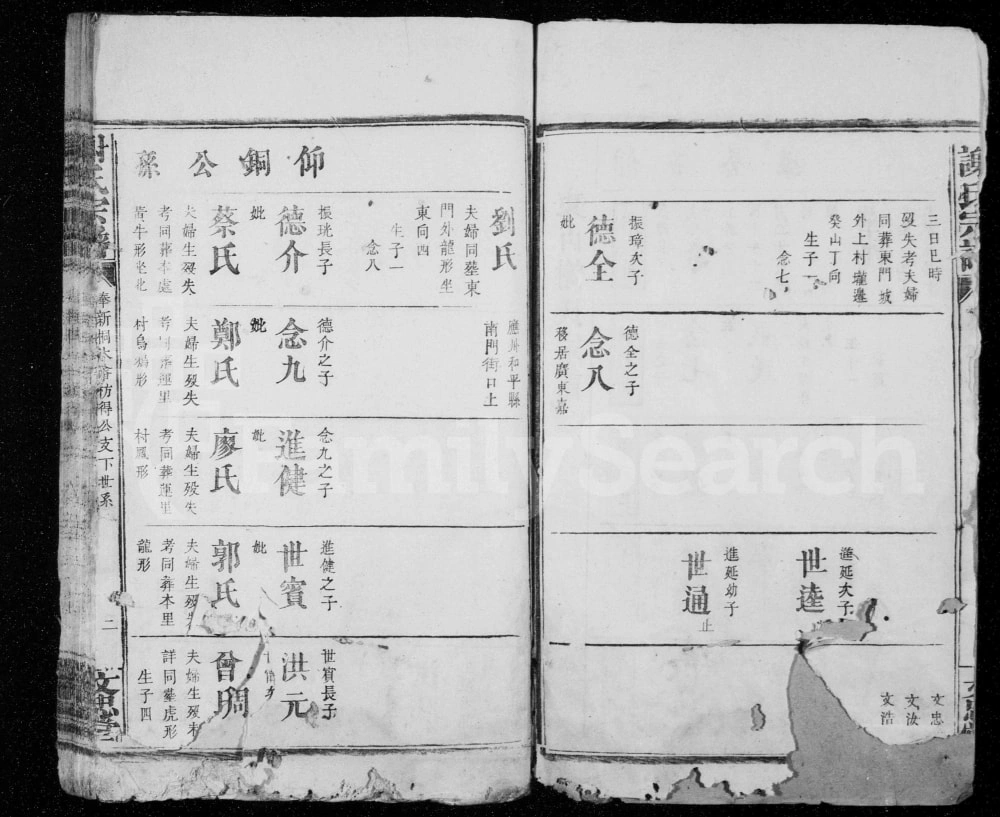 三日巳時
歿失考夫婦
同葬東門城
外上村壠邊
癸山丁向
生子一
念七
振璋次子
德全
妣
德全之子
念八
移居廣東嘉
進延次子
世逵
進延幼子
世通
止
文忠
文汝
文浩
劉氏
夫婦同塟東
門外龍形坐
東向四
生子一
念八
應州和平縣
南門街口上
仰銅公系
振珖長子
德介
妣
蔡氏
夫婦生歿失
考同葬本處
眠牛形
德介之子
念九
妣
鄭氏
夫婦生歿失
考同葬運里
村烏鴉形
念九之子
進健
妣
廖氏
夫婦生歿失
考同葬運里
村鳳形
進健之子
世賓
妣
郭氏
夫婦生歿失
考同葬本里
龍形
世賓長子
洪元
夫婦生歿未
詳同塟虎形
生子四
奉新桐木 彷得公支下世系
二
FamilySearch